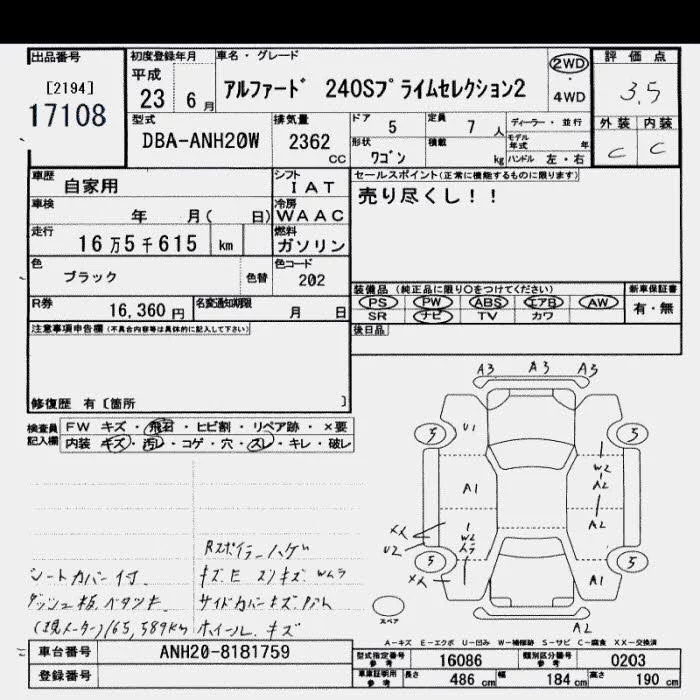 出品番号
[2194]
17108
初度登録年月
平成
23 6月
車名・グレード
アルファード 240Sプライムセレクション2
2WD
4WD
評価点
3.5
型式
DBA-ANH20W
排気量
2362
CC
ドア
5
定員
7 人
形状
ワゴン
積載
kg
ディーラー・並行
モデル年式 年
ハンドル 左・右
外装 内装
C C
車歴
自家用
シフト
IAT
車検
年 月( 日)
冷房
WAAC
走行
16万5千615 km
燃料
ガソリン
色
ブラック
色替
色コード
202
R券
16,360円
名変通知期限
月 日
セールスポイント(正常に機能するものに限ります)
売り尽くし!!
装備品(純正品に限り○をつけてください)
PS PW ABS エアB AW
SR ナビ TV カワ
新車保証書
有・無
後日品
注意事項申告欄(不具合内容等は具体的に記入して下さい)
修復歴 有[箇所 ]
検査員記入欄
FW キズ・飛石・ヒビ割・リペア跡・×要
内装 キズ・汚レ・コゲ・穴・スレ・キレ・破レ
A3 A3 A3
5 U1 5
W2
A2
A1
A2
W2
U2
5 5
A1
スペア
A2
Rスポイラーハゲ
シートカバー付
キズE スリキズ Wムラ
ダッシュ板ベタツキ
サイドカバーキズ
(現メーター)165,589km ホイールキズ
A-キズ E-エクボ U-凹み W-補修跡 S-サビ C-腐食 XX-交換済
車台番号
ANH20-8181759
登録番号
型式指定番号 参考
16086
類別区分番号 参考
0203
車車証明用 参考
長さ 486 cm 幅 184 cm 高さ 190 cm